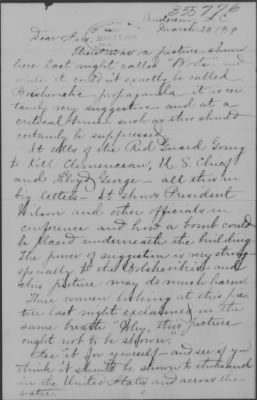 355776
Anderson, S.C.
March 28, 1919
Dear Sir:
There was a picture shown
here last night called "
while it could'nt exactly be called
Bolshevistic propaganda it is cer
tainly very suggestive and at a
critical time such as this should
certainly be suppressed.
It tells of the Red Guard Going
to kill Clemenceau, U.S. Chief
and Lloyd George - all this in
big letters - It shows President
Wilson and other officials in
conference and how a bomb could
be placed underneath the building.
The power of suggestion is very strong
specially to the Bolsheviki and
this picture may do much harm.
Three women looking at this pic
ture last night exclaimed in the
same breath "Why, this picture
ought not to be shown."
See it for yourself - and see if you
think it should be shown to thousands
in the United States and across the
water.